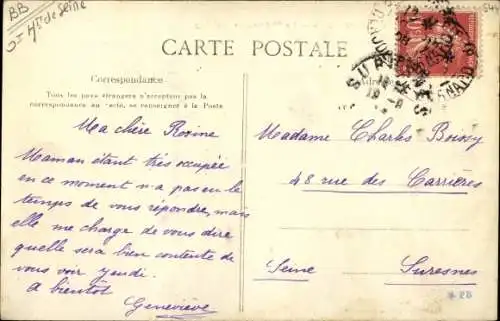 BB
Hts de Seine
CARTE POSTALE
Correspondance
Tous les pays étrangers n'acceptent pas la
correspondance au recto, se renseigner à la Poste
Ma chère Rosine
Maman étant très occupée
en ce moment n'a pas eu le
temps de vous répondre, mais
elle me charge de vous dire
quelle sera bien contente de
vous voir jeudi.
A bientôt
Geneviève
Madame Charles Boissy
48 rue des Carrières
Seine Suresnes